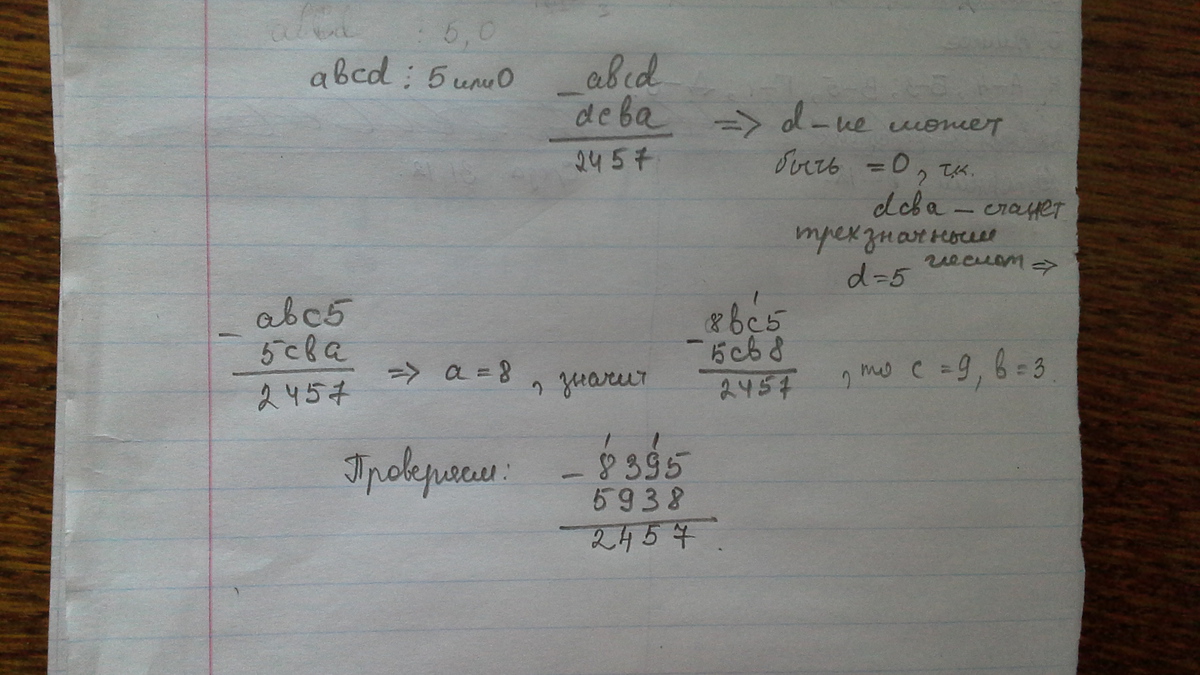 abcd : 5,0
abcd ⋮ 5 или 0
− abcd
dcba
2457
=> d – не может
быть =0, т.к.
dcba – станет
трехзначным
числом =>
d=5
− abc5
5cba
2457
=> a = 8, значит
− 8bc5
5cb8
2457
, то c = 9, b = 3.
Проверяем:
− 8395
5938
2457.